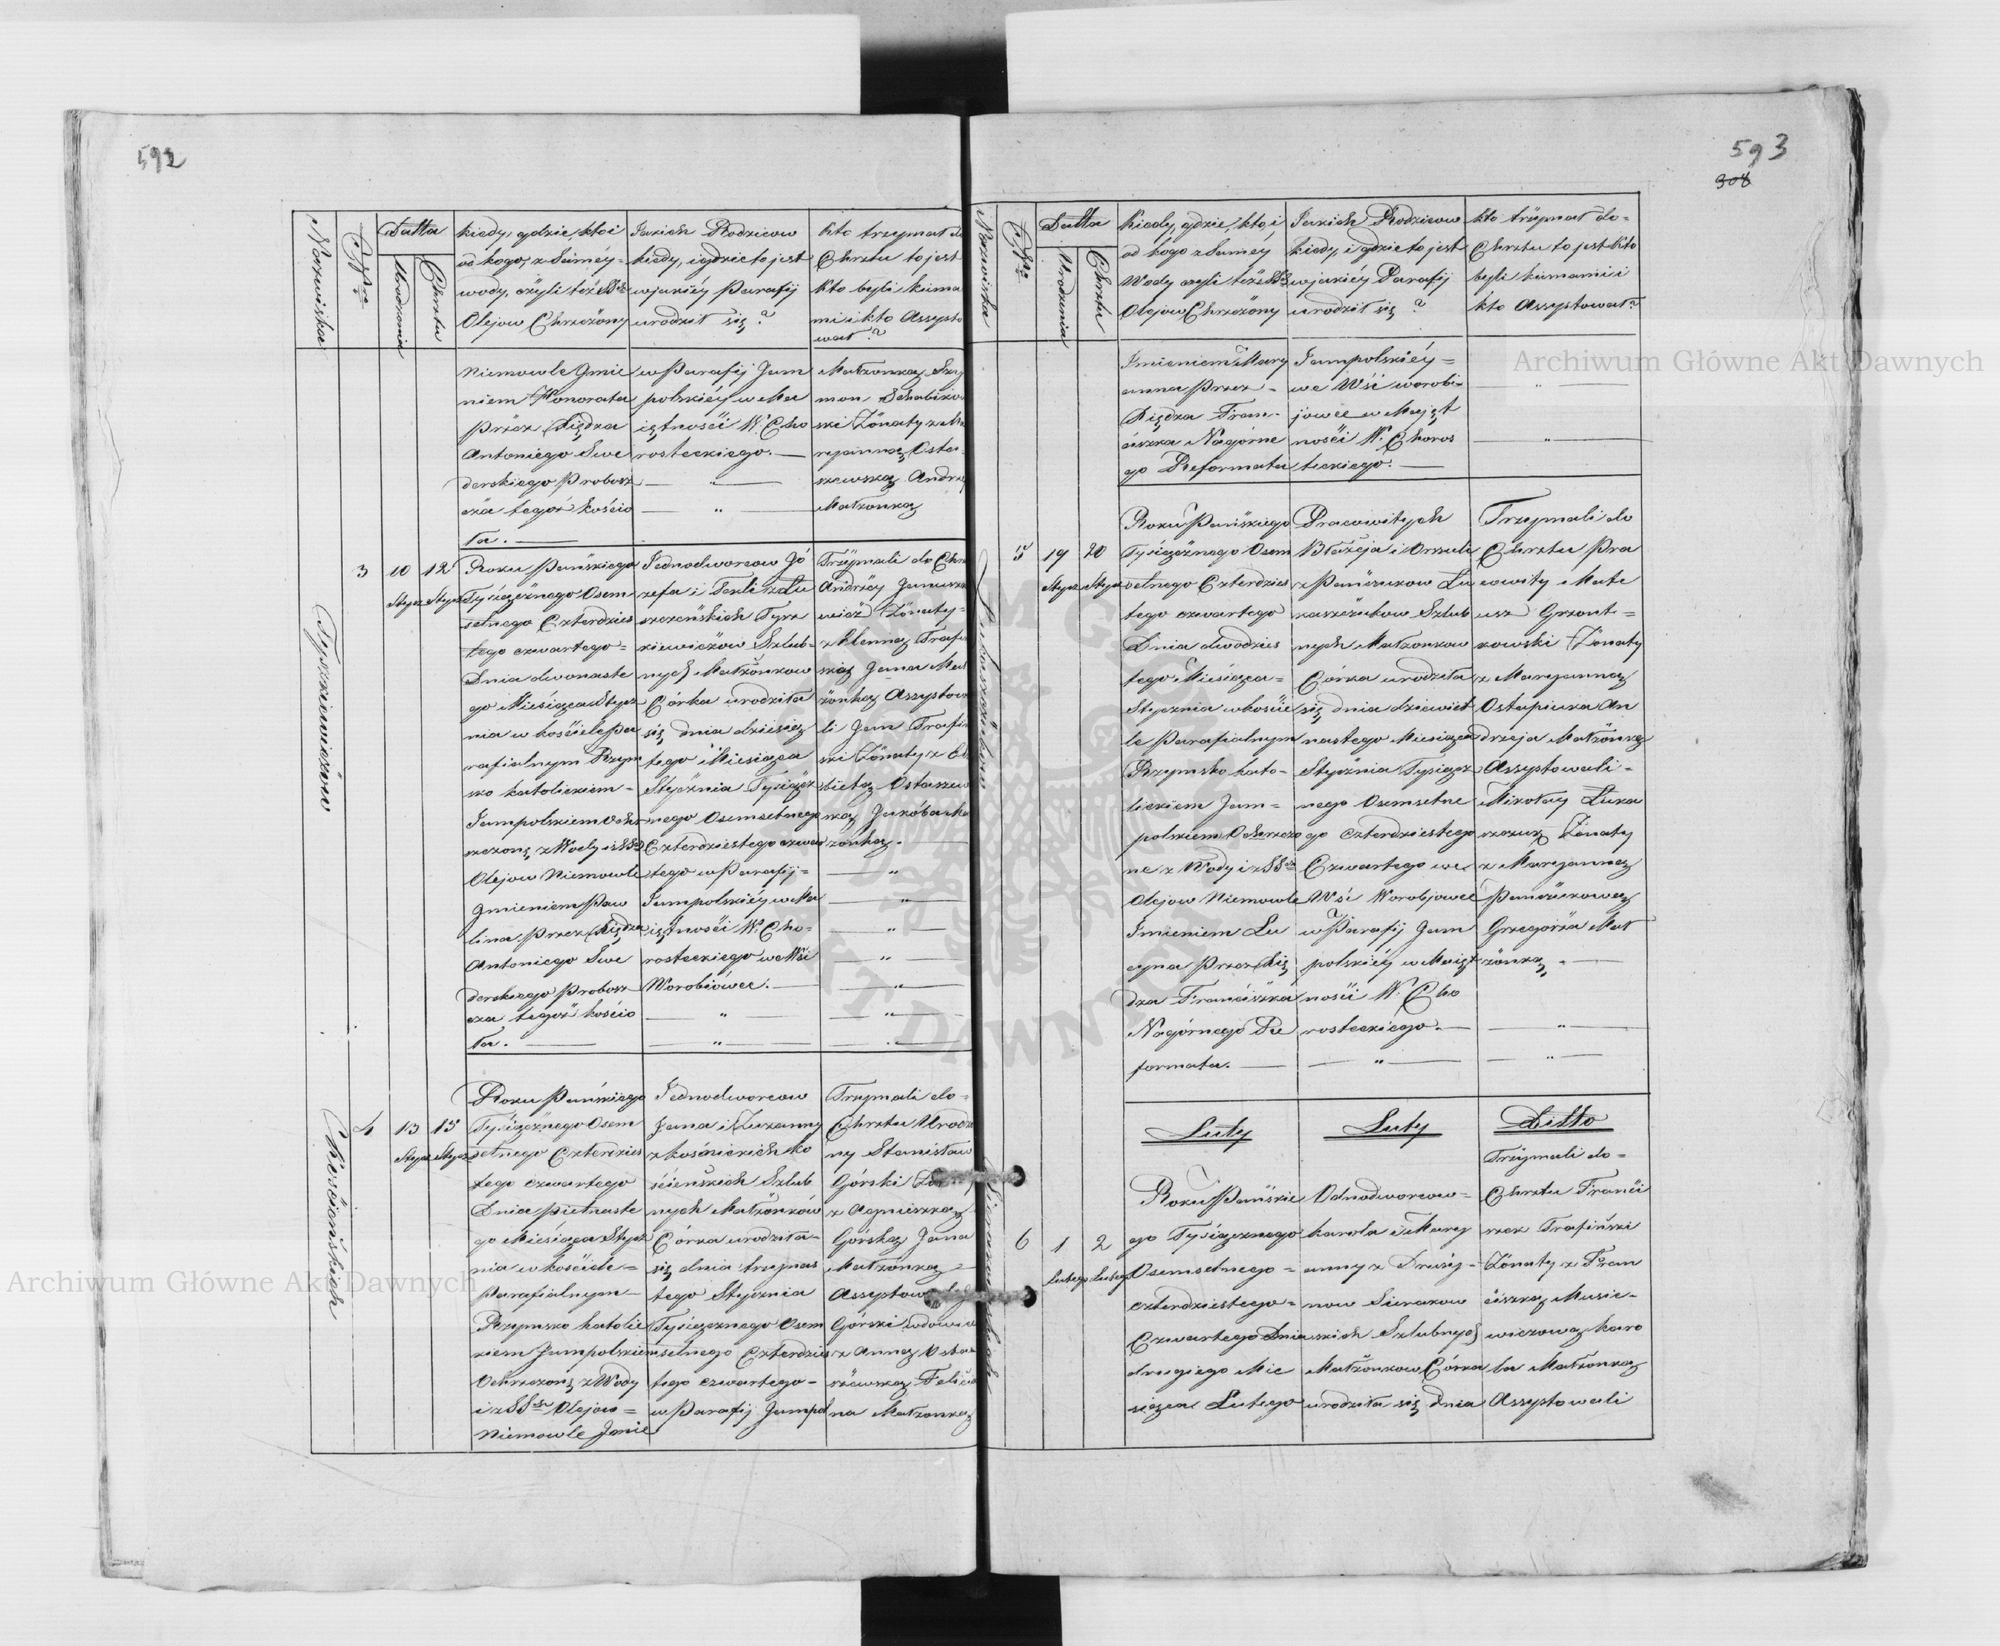 592
Nazwiska
Datta
Urodzenia
Chrztu
kiedy, gdzie, kto i
od kogo, z Saméy
wody, czyli też SS.
Olejow Chrzczony
Jakich Rodzicow
kiedy, i gdzie to jest
w jakiéy Parafij
urodził się?
kto trzymał do
Chrztu to jest
kto byli kuma
mi i kto Assysto
wał?
Niemowle Jmie
niem Honorata
przez Xiędza
Antoniego Swe
derskiego Probosz
cza tegoż kościo
ła.
w Parafij Jam
polskiéy w Ma
iętności W. Cho
rosteckiego.
Małżonką Szy
mon
ski Żonaty z Ma
ryanną Osta
szewską Andrz
Małżonką
Tyszkiewiczow
3
10
Stycz
12
Stycz
Roku Pańskiego
Tysiącznego Osem
setnego Czterdzies
tego czwartego
Dnia dwonaste
go Miesiąca Stycz
nia w kościele Pa
rafialnym Rzym
sko katolickiem
Jampolskiem Ochr
szczono z Wody i z SS
Olejow Niemowle
Jmieniem Paw
lina przez Xiędza
Antoniego Swe
derskiego Probosz
cza tegoż kościo
ła.
Jednodworcow Jó
zefa i Tekli z Łu
szczeńskich Tysz
kiewiczow Szlub
nych Małżonkow
Córka urodziła
się dnia dziesią
tego Miesiąca
Stycznia Tysiącz
nego Osemsetnego
Czterdziestego czwar
tego w Parafij
Jampolskiéy w Ma
iętności W. Cho
rosteckiego we Wsi
Worobiówce.
Trzymali do Chrz
Andrzéy Janusz
wicz Żonaty
z Elenną Trafi
ską Jana Mał
żonką Assystowa
li Jan Trafi
ski Żonaty z El
bietą Ostaszew
ską Jakóba Ma
żonką.
Chrościańskich
4
13
Stycz
15
Stycz
Roku Pańskiego
Tysiącznego Osem
setnego Czterdzies
tego czwartego
Dnia pietnaste
go Miesiąca Stycz
nia w kościele
Parafialnym
Rzymsko katolic
kiem Jampolskiem
Ochrzczono z Wody
i z SS. Olejow
Niemowle Jmie
Jednodworcow
Jana i Zuzanny
z kośnickich
ścieńskich Szlub
nych Małżonków
Córka urodziła
się dnia trzynas
tego Stycznia
Tysiącznego Osem
setnego Czterdzies
tego czwartego
w Parafij Jampol
Trzymali do
Chrztu Urodzo
ny Stanisław
Górski
z Agnieszką
Górską Jana
Małżonką
Assystow
Górski wdowie
z Anną Osta
szewską Felicia
na Małżonką
593
308
Nazwiska
Datta
Urodzenia
Chrztu
kiedy, gdzie, kto, i
od kogo z Saméy
Wody czyli też SS
Olejow Chrzczony
Jakich Rodzicow
kiedy, i gdzie to jest
w jakiéy Parafij
urodził się?
kto trzymał do
Chrztu to jest kto
byli kumami i
kto Assystował?
Jmieniem Mary
anna przez
Xiędza Fran
ciszka Nagórne
go Reformata
Jampolskiéy
we Wsi Worobi
jowce w Majęt
ności W. Choros
teckiego.
5
19
Stycz
20
Stycz
Roku Pańskiego
Tysiącznego Osem
setnego Czterdzies
tego czwartego
Dnia dwudzies
tego Miesiąca
Stycznia w koście
le Parafialnym
Rzymsko kato
lickiem Jam
polskiem Ochrzczo
no z Wody i z SS
Olejow Niemowle
Jmieniem Łu
cyna przez Xię
dza Franciszka
Nagórnego Re
formata.
Pracowitych
Błażeja i Orszuli
z Pańczukow Łu
kaszczukow Szlub
nych Małżonkow
Córka urodziła
się dnia dziewięt
nastego Miesiąca
Stycznia Tysiącz
nego Osemsetne
go czterdziestego
Czwartego we
Wsi Worobjowce
w Parafij Jam
polskiéy w Maięt
ności W. Cho
rosteckiego.
Trzymali do
Chrztu Pra
cowity Mate
usz Grzont
kowski Żonaty
z Maryanną
Ostapiuka An
drzeja Małżonką
Assystowali
Mikołay Łuka
szczuk Żonaty
z Maryanną
Pańczukową
Grzegorza Mał
żonką.
Luty
Luty
Ditto
6
1
Lutego
2
Lutego
Roku Pańskie
go Tysiącznego
Osemsetnego
czterdziestego
Czwartego Dnia
drugiego Mie
siąca Lutego
Odnodworcow
karola i Mary
anny z Druży
now Sierakow
skich Szlubnych
Małżonkow Córka
urodziła się dnia
Trzymali do
Chrztu Franci
szek Trafiński
Żonaty z Fran
ciszką Musie
wiczową karo
la Małżonką
Assystowali